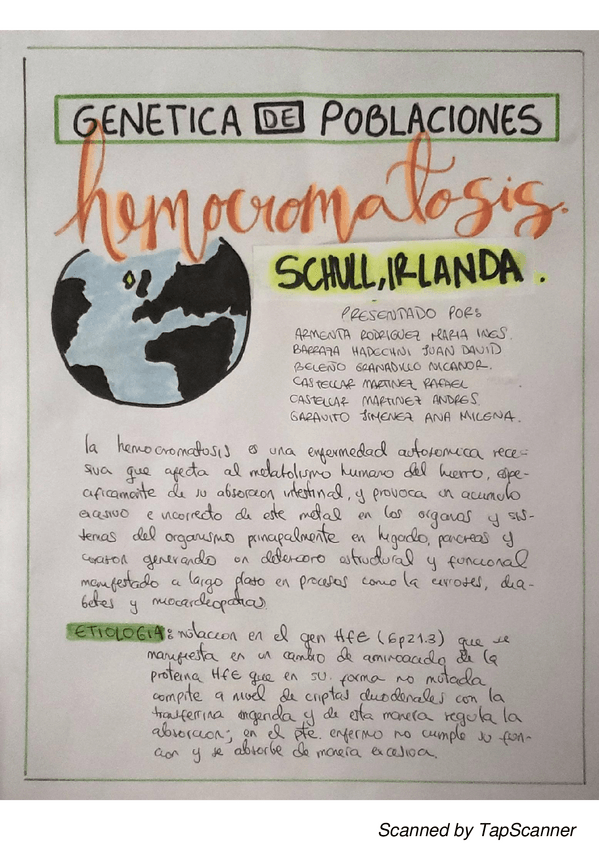 GENETICA DE POBLACIONES
hemocromatosis.
SCHULL, IRLANDA.
PRESENTADO POR:
ARMENTA RODRIGUEZ MARIA INES.
BARRAZA HADECHNI JUAN DAVID
BELEÑO GRANADILLO NICANOR.
CASTELLAR MARTINEZ RAFAEL
CASTELLAR MARTINEZ ANDRES.
GARAVITO JIMENEZ ANA MILENA.
la hemocromatosis es una enfermedad autosomica rece-
siva que afecta al metabolismo humano del hierro, espe-
cificamente de su absorcion intestinal, y provoca un acumulo
excesivo e incorrecto de este metal en los organos y sis-
temas del organismo principalmente en higado, pancreas y
corazon generando un deterioro estructural y funcional
manifestado a largo plazo en procesos como la cirrosis, dia-
betes y miocardiopatias.
ETIOLOGIA: mutacion en el gen HFE (6p21.3) que se
manifiesta en un cambio de aminoacido de la
proteina HFE que en su forma no mutada
compite a nivel de criptas duodenales con la
trasferrina y de esta manera regula la
absorcion; en el pte. enfermo no cumple su fun-
cion y se absorbe de manera excesiva.
Scanned by TapScanner